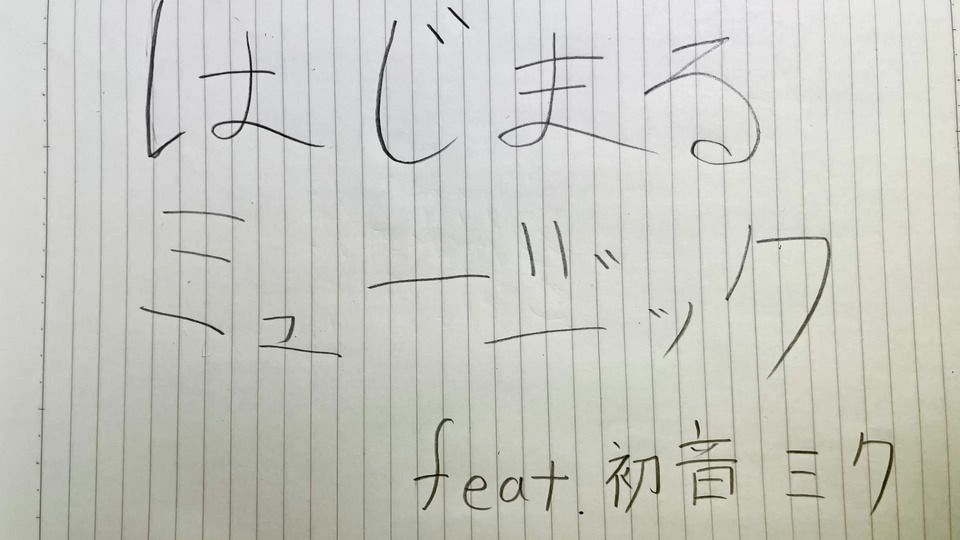 はじまる
ミュージック
feat.初音ミク